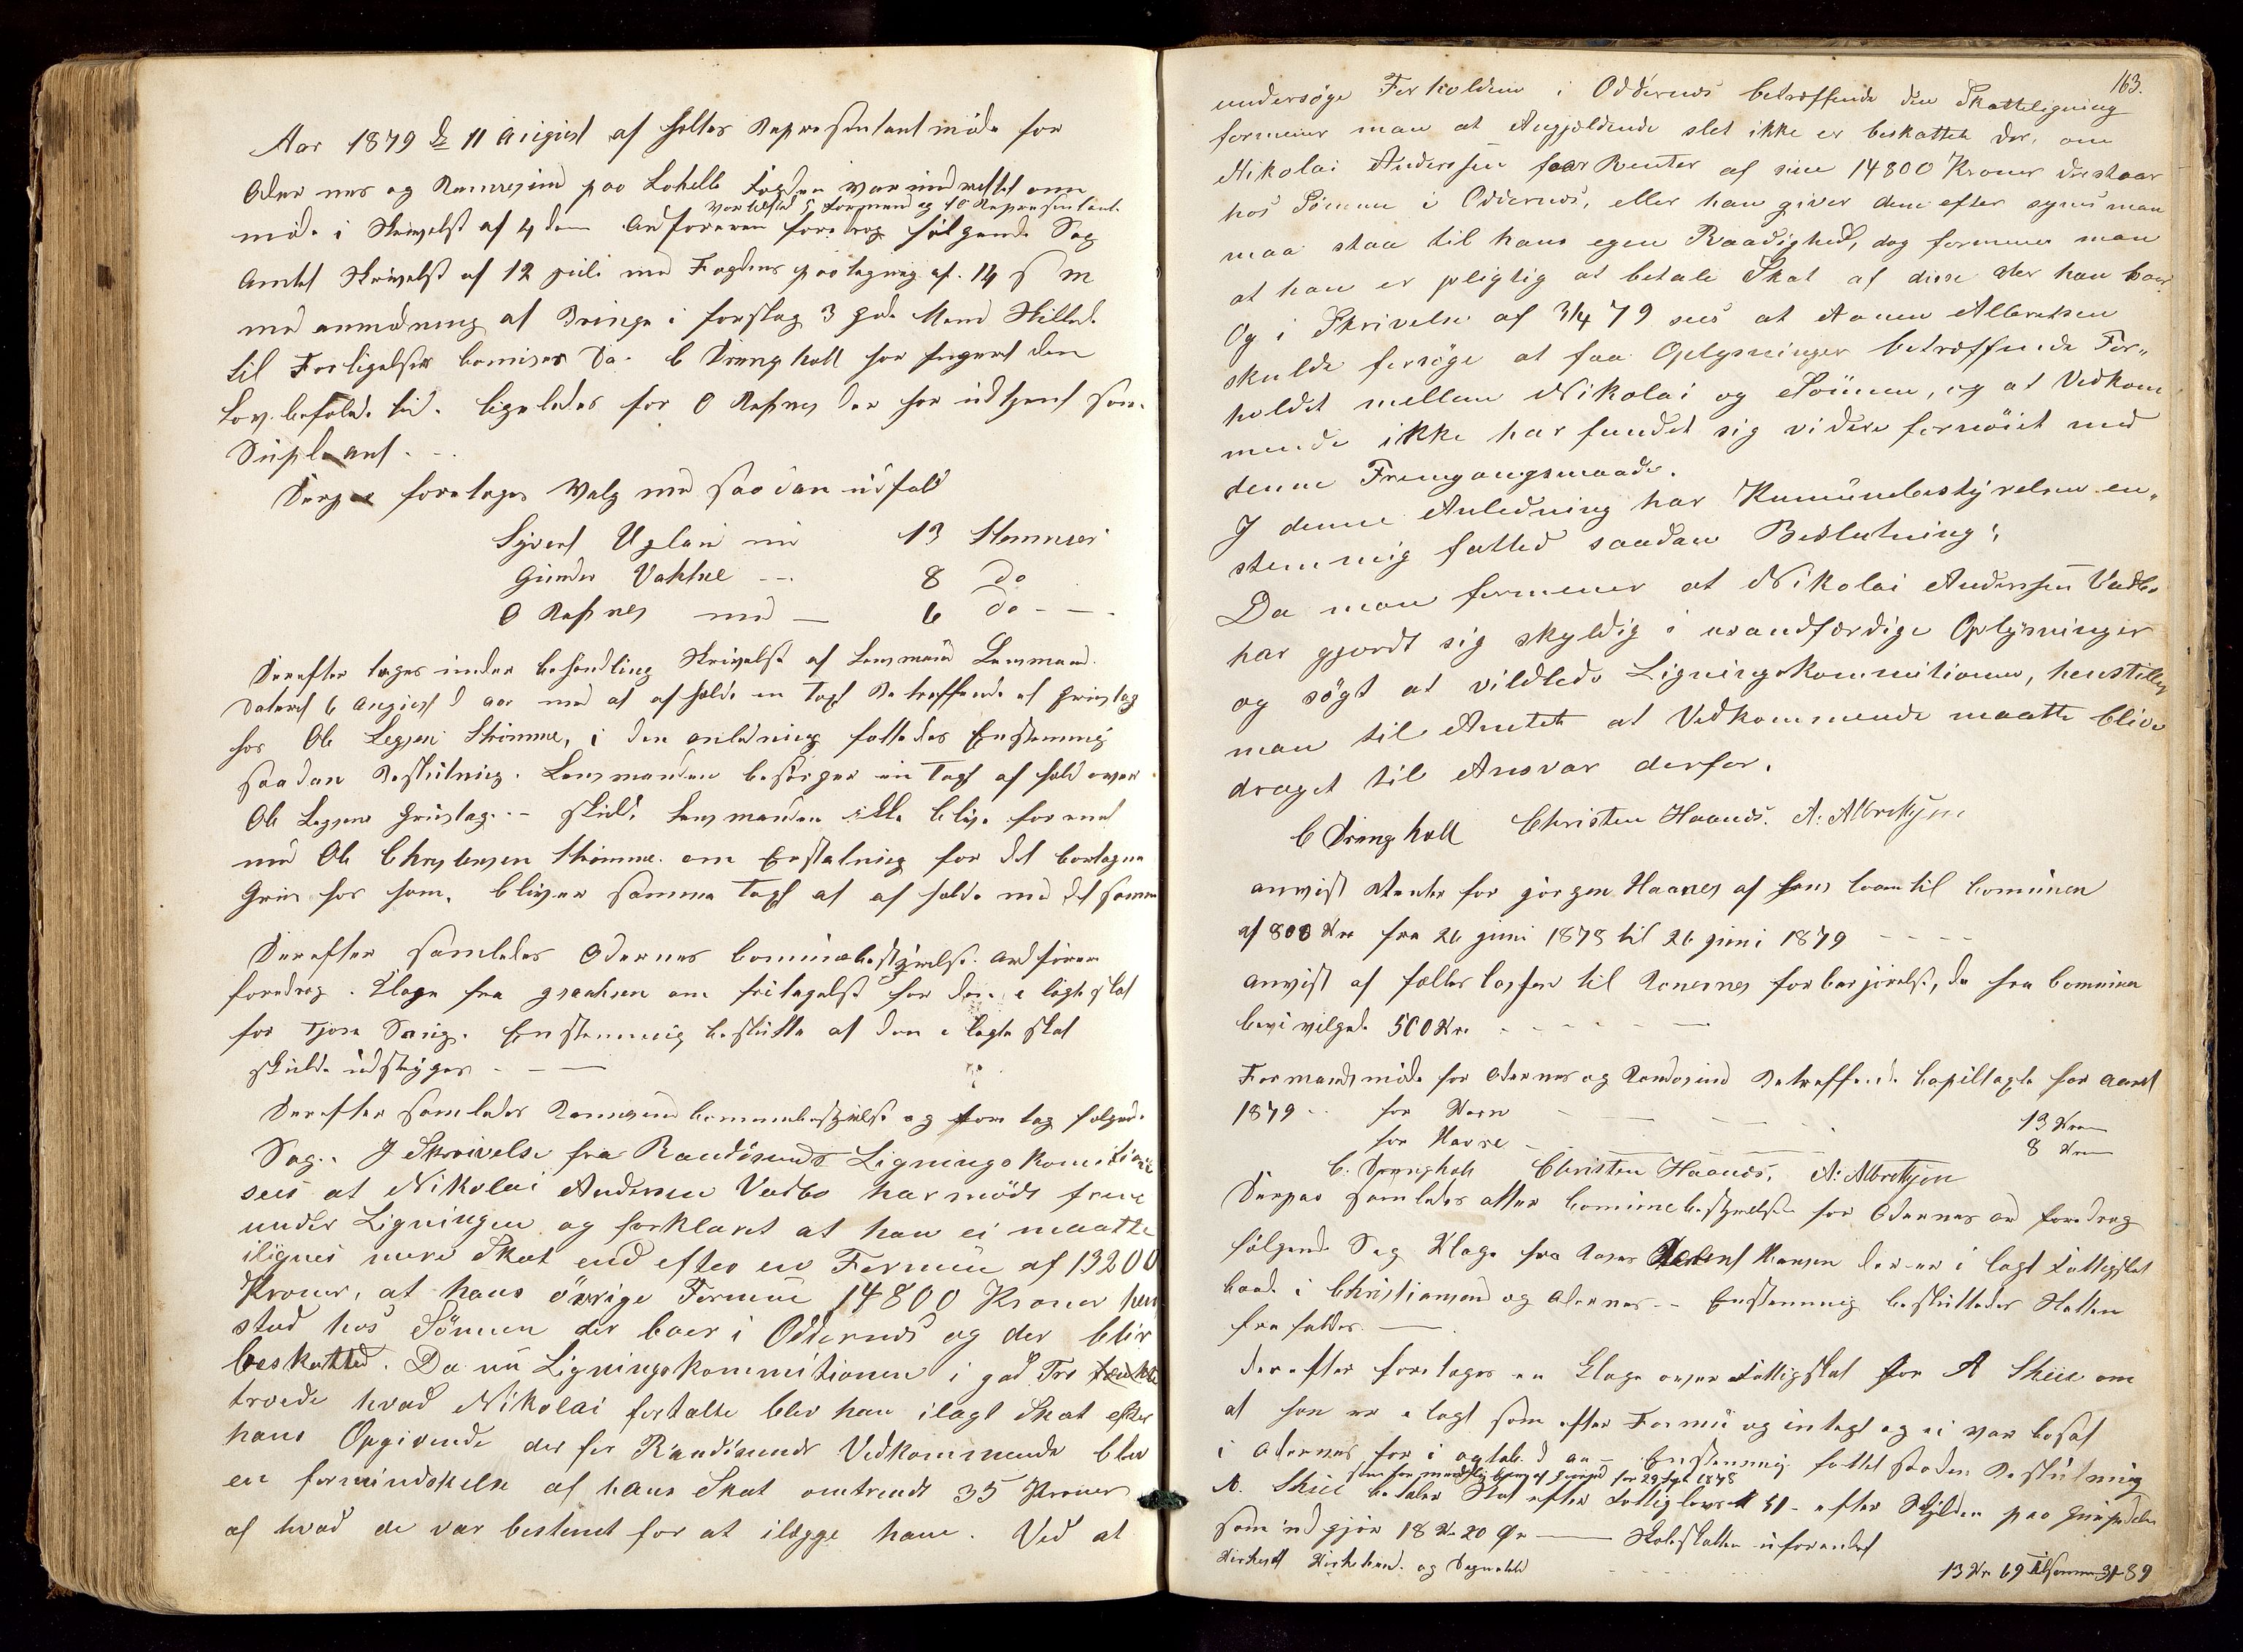 Aar 1879 d 11 august afholtes Representantmöde for
Odernes og Randesund paa Lohelle Fogden var indvarslet om
var tilsted 5 Formend og 10 Representant
möde i Skrivelse af 4 dem Ordföreren foredrog fölgende Sag
Amtet Skrivelse af 12 juli med Fogdens paategning af 14 s m
med anmodning at bringe i forslag 3 gode Mend Skikkede
til Forligelses comiser Da C Drangholt har fungert den
Lov befalede tid. ligeledes for O Refsnes der har udtjent som
Supleant.
Derpaa foretages Valg med saadan udfald
Syvert Ugland med 13 Stemmer
Gunder Vatne -- 8 do
O Refsnes med - 6 do - -
Derefter toges under behandling Skrivelse af Lensmand
Dateret 6 august d aar med at afholde en Taxt Betreffende et Grustag
hos Ole Strömme, i den anledning fattedes Enstemmig
saadan Beslutning. Lensmanden besörger en Taxt afholt over
Ole Grustag. - skulde Lensmanden ikke blive forenet
med Ole Strömme om Erstatning for det bortagne
Grus hos ham, bliver samme Taxt at afholde med det samme
Derefter samledes Odernes Comunebestyrelse. Ordförer
foredrog. Klage fra om fritagelse for den i lagte skat
for . Enstemmig beslutte at den i lagte skat
skulde udstryges - - -
Derefter samledes Randesund Comunebestyrelse og foretog fölgende
Sag. I Skrivelse fra Randösunds Ligningskomition
sees at Nikolai Andersen Vadbo har mödt frem
under Ligningen og forklaret at han ei maatte
ilignes mere Skat end efter en Formue af 13200
Kroner, at hans övrige Formue 14800 Kroner hen
stod hos Sönnen der boer i Oddernes og der blir
beskattet. Da nu Ligningskommitionen i god Tro
troede hvad Nikolai fortalte blev han ilagt Skat efter
hans Opgivende der for Randösunds Vedkommende blev
en formindskelse af hans Skat omtrendt 35 Kroner
af hvad de var bestemt for at ilægge ham. Ved at
163.
undersöge Forholdene i Oddernes betræffende den Skatteligning
formener man at Angjældende slet ikke er beskattet der, om
Nikolai Anderssen faar Renter af sine 14800 Kroner der staar
hos Sönnen i Oddernes, eller han giver dem efter synes man
maa staa til hans egen Raadighed, dog formener man
at han er pligtig at betale Skat af disse der han boer.
Og i Skrivelse af 3/4 79 sees at Aanen Albretsen
skulde forsöge at faa Oplysninger betræffende For„
holdet mellem Nikolai og Sönnen, og at Vedkom
mende ikke har fundet sig videre fornöiet med
denne Fremgangsmaade.
I denne Anledning har Kumunebestyrelsen en„
stemmig fatted saadan Beslutning:
Da man formener at Nikolai Anderssen Vadbo
har gjordt sig skyldig i usandfærdige Oplysninger
og sögt at vildlede Ligningskommitionen, henstiller
man til Amtet at Vedkommende maatte blive
draget til Ansvar derfor.
C Drangholt Christen Haanes. A: Albretsen
anvist Renter for jörgen Haanes af hans laan til Comunen
af 800 Kr fra 26 juni 1878 til 26 juni 1879 - - - -
anvist af felleskassen til Ronenes forbersjörelse, da fra Comunen
bevilgede 500 Kr. - - - - - -
Formandsmöde for Odernes og Randesund Betreffende Capitlagte for aaret
1879 -- for Korn - - - - 13 Kr
for Havre - - - 8 Kr
C. Drangholt Christen Haanes, A: Albretsen
Derpaa samledes atter Comunebestyrelse for Odernes od foredrog
fölgende Sag Klage fra Hansen der er i lagt Fattigskat
baade i Christiansand og Odernes -- Enstemmig besluttedes Skatten
frafaldes. -
derefter foretoges en Klage over Fattigskat for A Skeie om
at han er i lagt som efter Formue og integt og ei var bosat
i Odernes for i d aa - Enstemmig fattet saaden Beslutning
A. Skeie betaler Skat efter Fattiglovens § 51 - efter Skylden paa
som udgjör 18 Kr 20 Ör - Skoleskatten uforandret
og 13 Kr 69 tilsammen 31-89